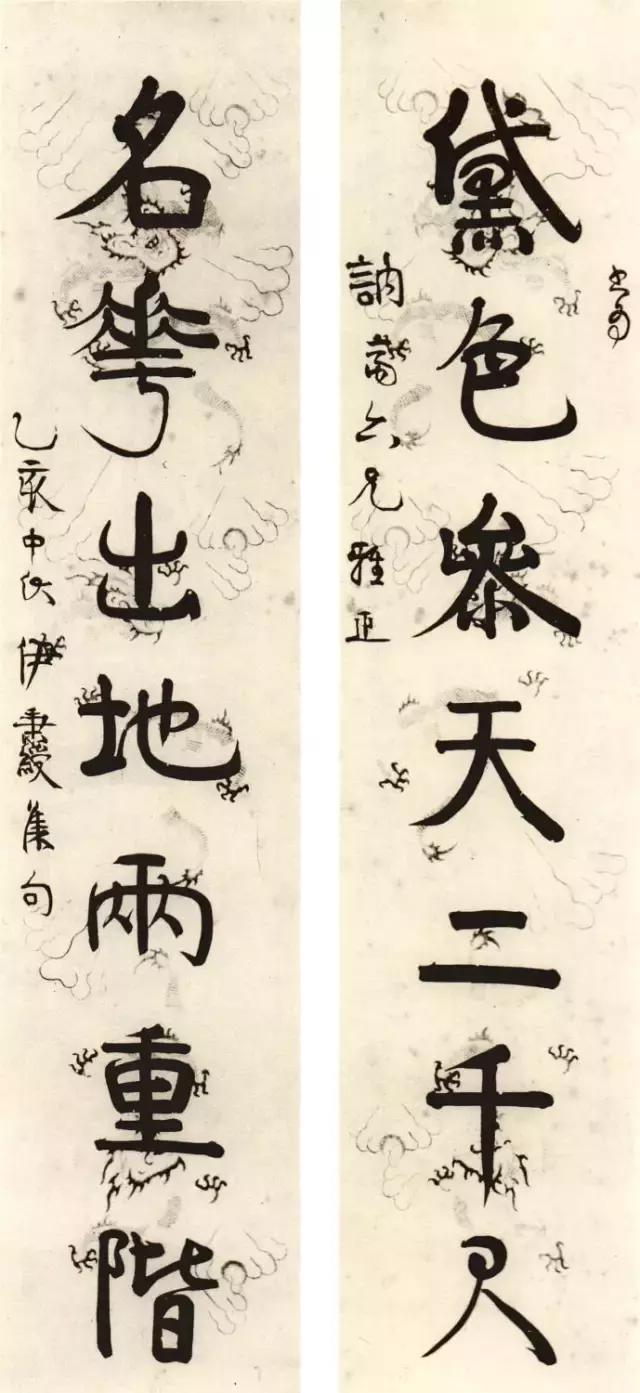 書為
黛色參天二千尺
訥六兄雅正
名花出地兩重階
乙亥中秋伊秉綬集句